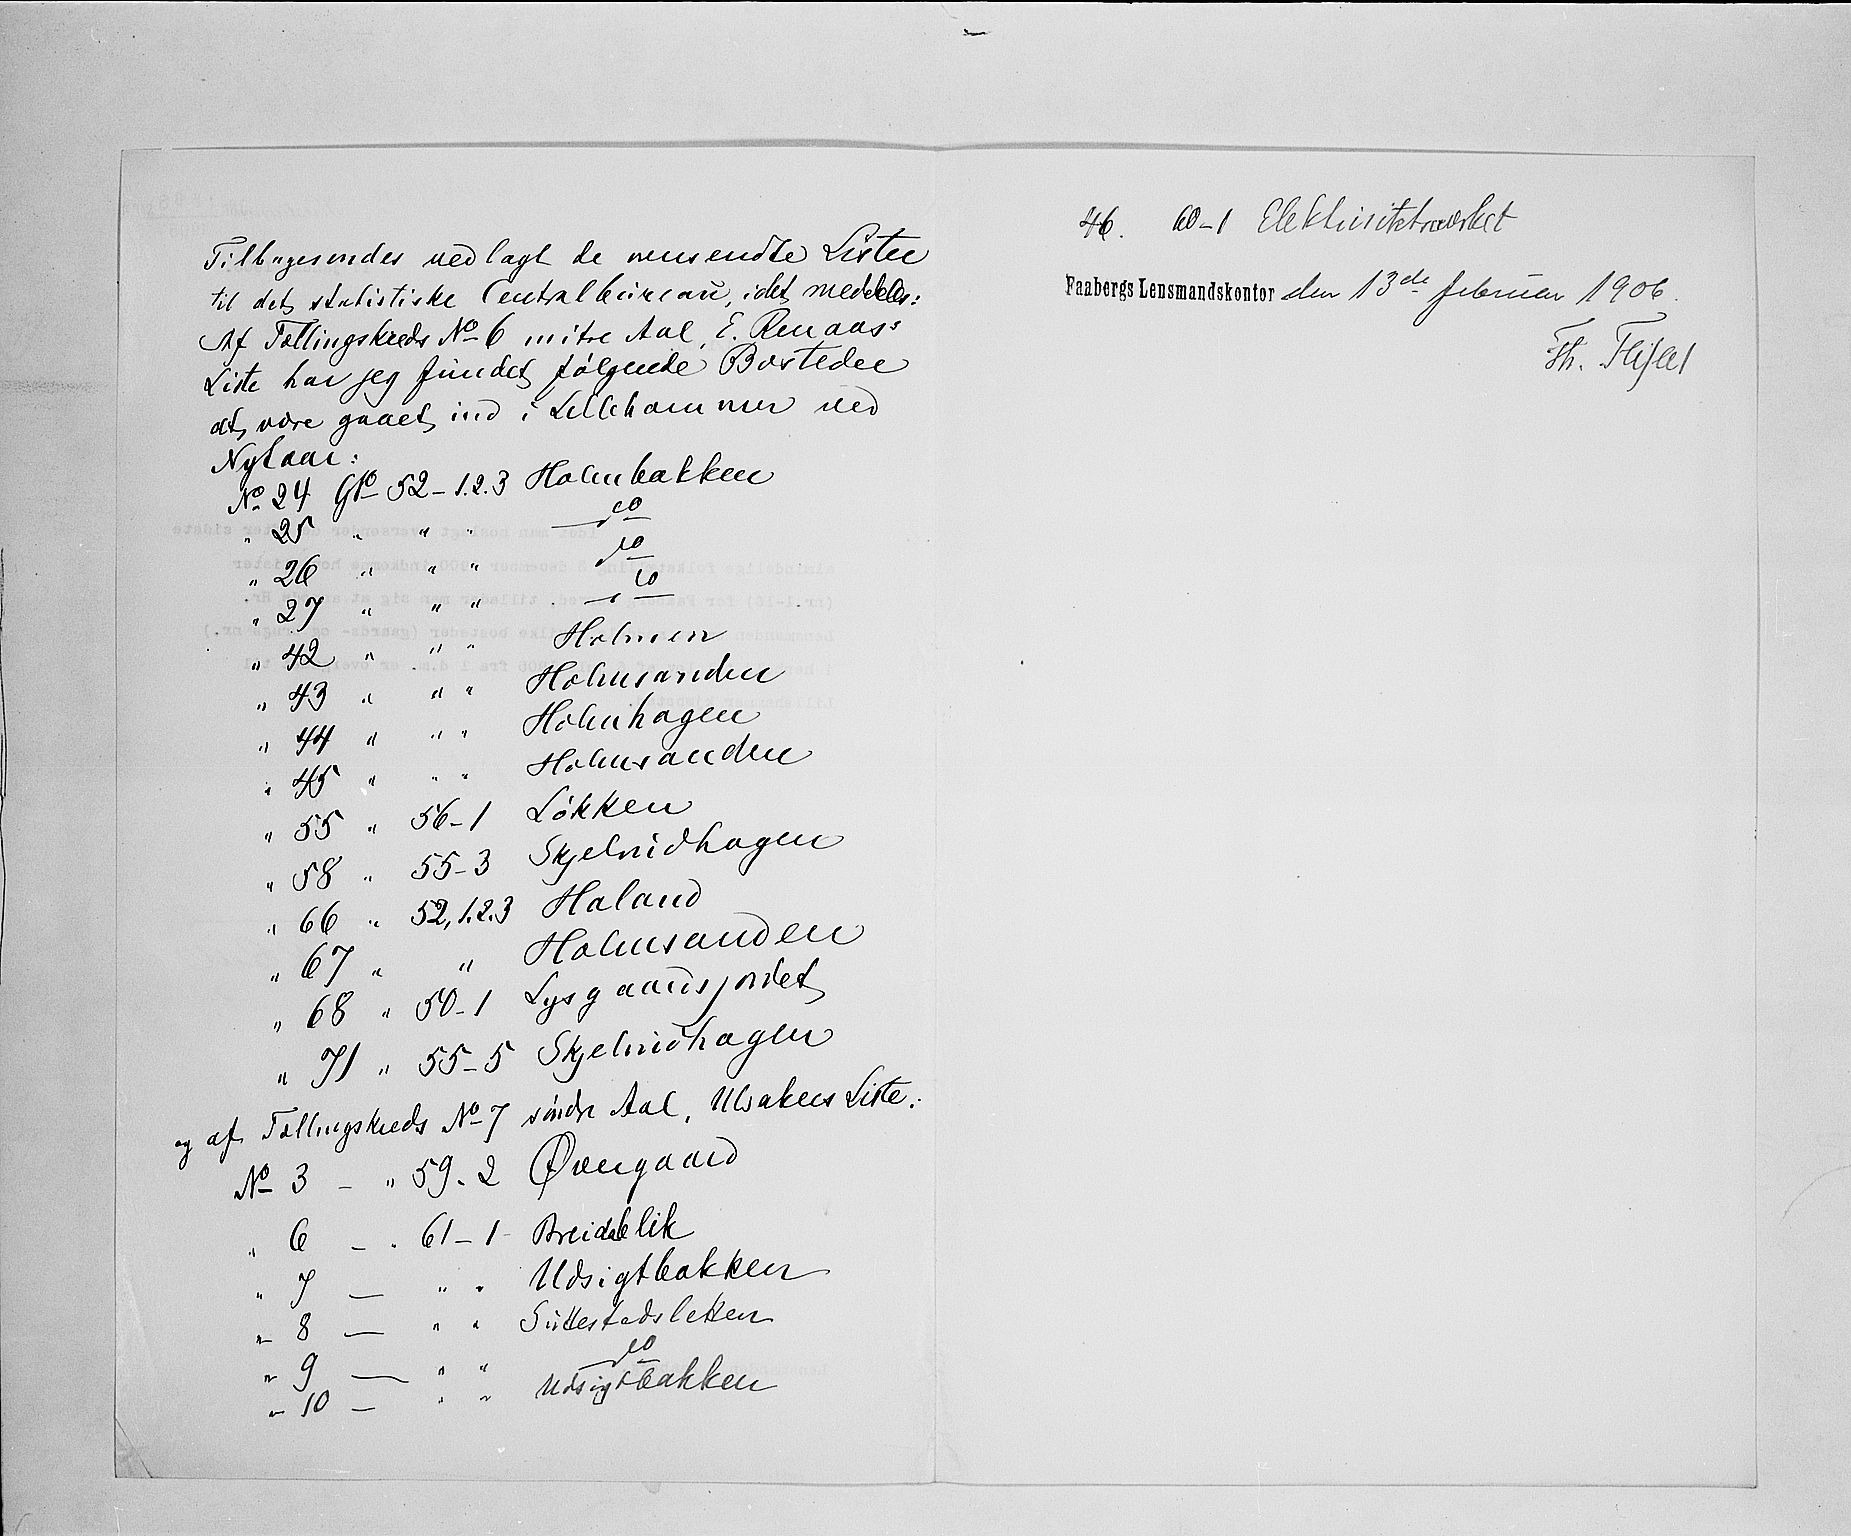 Tilbagesendes vedlagt de omsendte Lister
til det statistiske Centralbureau, idet meddeles:
Af Tællingskreds No 6 nitre Aal, E. Renaas's
Liste har jeg fundet følgende Bosteder
at være gaaet ind i Lillehammer ved
Nytaar:
No 24 Gno 52-1.2.3 Holmbakken
" 25 " " " do
" 26 " " " do
" 27 " " " do
" 42 " " " Holmen
" 43 " " " Holmsanden
" 44 " " " Holmhagen
" 45 " " " Holmsanden
" 55 " 56-1 Løkken
" 58 " 55-3 Skjelvidhagen
" 66 " 52,1.2.3 Haland
" 67 " " Holmsanden
" 68 " 50-1 Lysgaardsjordet
" 71 " 55-5 Skjelvidhagen
og af Tællingskreds No 7 søndre Aal, Ulvakers Liste:
No 3 - " 59-2 Øvergaard
" 6 - " 61-1 Breidablik
" 7 - " " Udsigtbakken
" 8 - " " Suttestadsletten
" 9 - " " do
" 10 - " " Udsigtbakken
46. 60-1 Elektricitetsværket
Faabergs Lensmandskontor den 13de februar 1906.
Th.